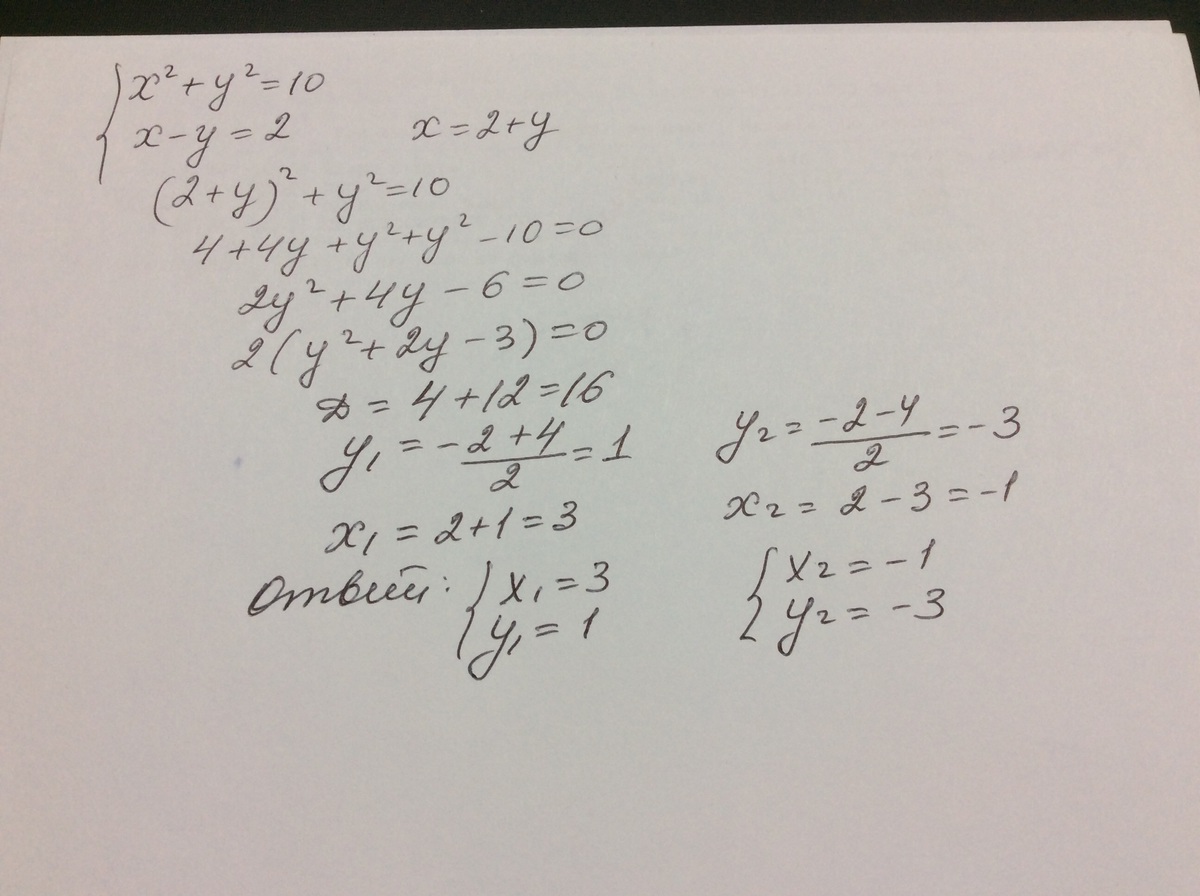 {x²+y²=10
x-y=2   x=2+y
(2+y)²+y²=10
4+4y+y²+y²-10=0
2y²+4y-6=0
2(y²+2y-3)=0
D=4+12=16
y₁=(-2+4)/2=1   y₂=(-2-4)/2=-3
x₁=2+1=3   x₂=2-3=-1
Ответ: {x₁=3   {x₂=-1
y₁=1   y₂=-3